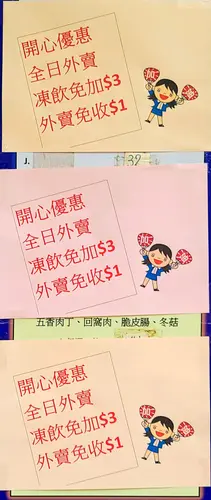 開心優惠
全日外賣
凍飲免加$3
外賣免收$1
J.
$139
開心優惠
全日外賣
凍飲免加$3
外賣免收$1
五香肉丁、回窩肉、脆皮腸、冬菇
開心優惠
全日外賣
凍飲免加$3
外賣免收$1